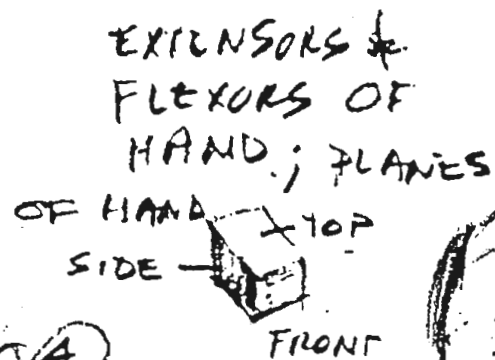 EXTENSORS &
FLEXORS OF
HAND; PLANES
OF HAND
TOP
SIDE
FRONT